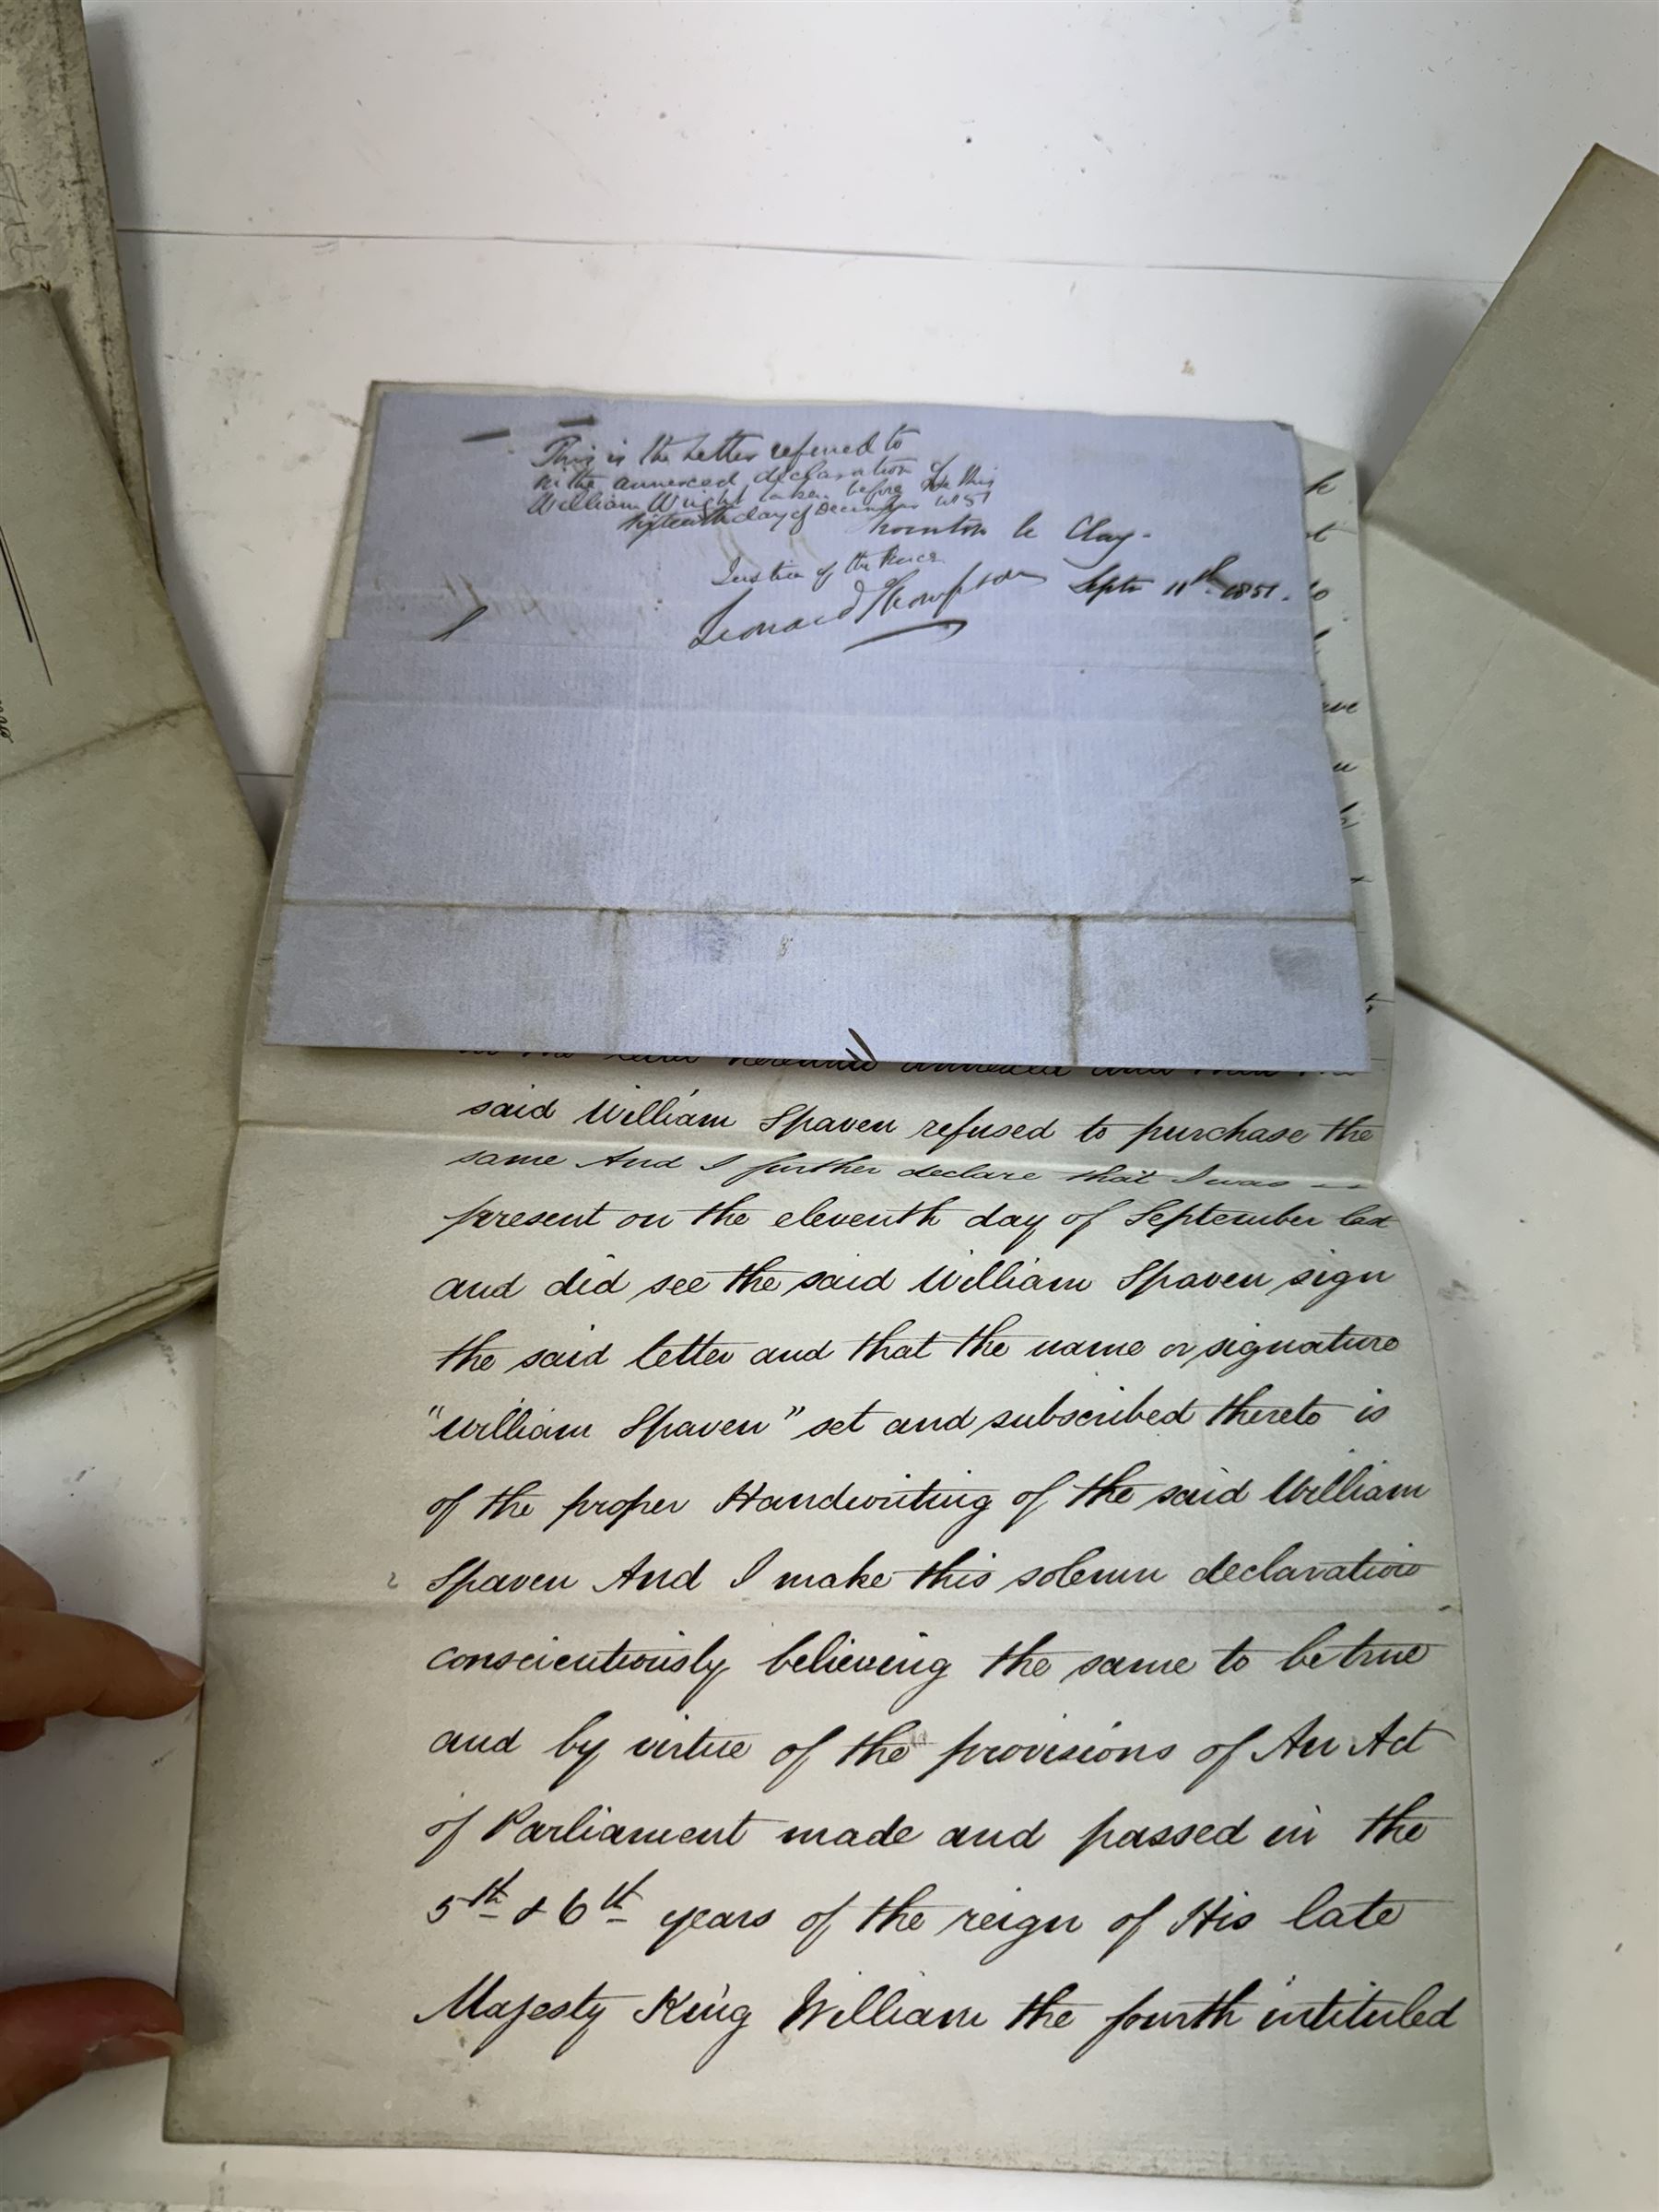 This is the Letter referred to
in the annexed declaration of
William Wright taken before me this
sixteenth day of December 1851
Thornton le Clay.
Justice of the Peace
Leonard Thompson Septr 11th 1851.
in the letter hereunto annexed and that the
said William Spaven refused to purchase the
same And I further declare that I was
present on the eleventh day of September last
and did see the said William Spaven sign
the said letter and that the name or signature
"William Spaven" set and subscribed thereto is
of the proper Handwriting of the said William
Spaven And I make this solemn declaration
conscientiously believing the same to be true
and by virtue of the provisions of An Act
of Parliament made and passed in the
5th & 6th years of the reign of His late
Majesty King William the fourth intituled